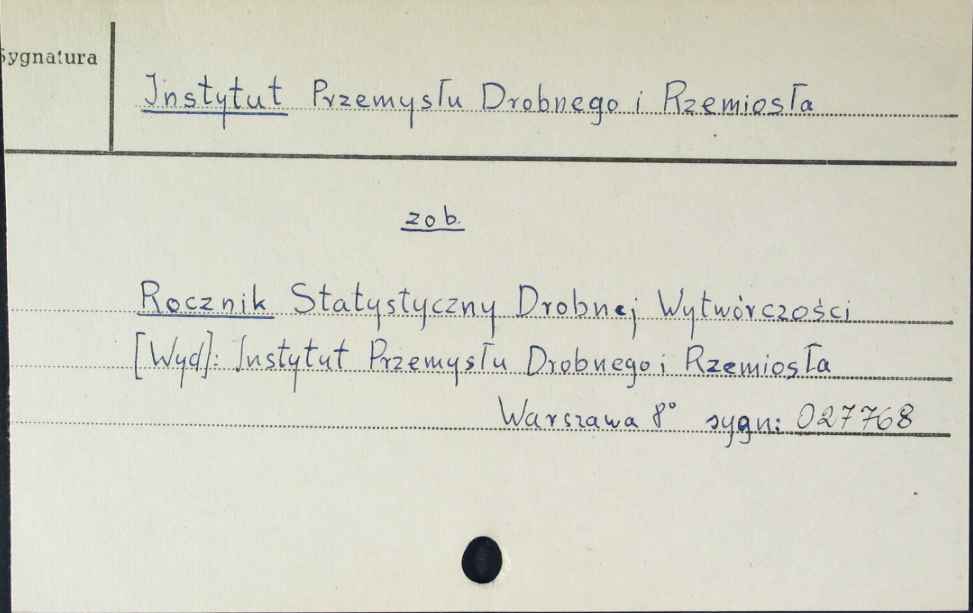 Sygnatura
Instytut Przemysłu Drobnego i Rzemiosła
zob.
Rocznik Statystyczny Drobnej Wytwórczości
[Wyd]: Instytut Przemysłu Drobnego i Rzemiosła
Warszawa 8° sygn: 027768